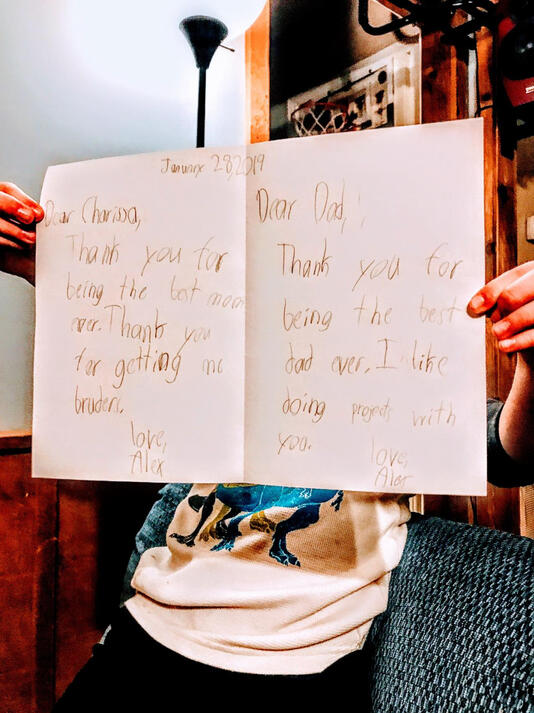 January 28, 2019
Dear Charissa,
Thank you for
being the best mom
ever. Thank you
for getting me
bruders.
love,
Alex
Dear Dad,
Thank you for
being the best
dad ever. I like
doing projects with
you.
love,
Alex